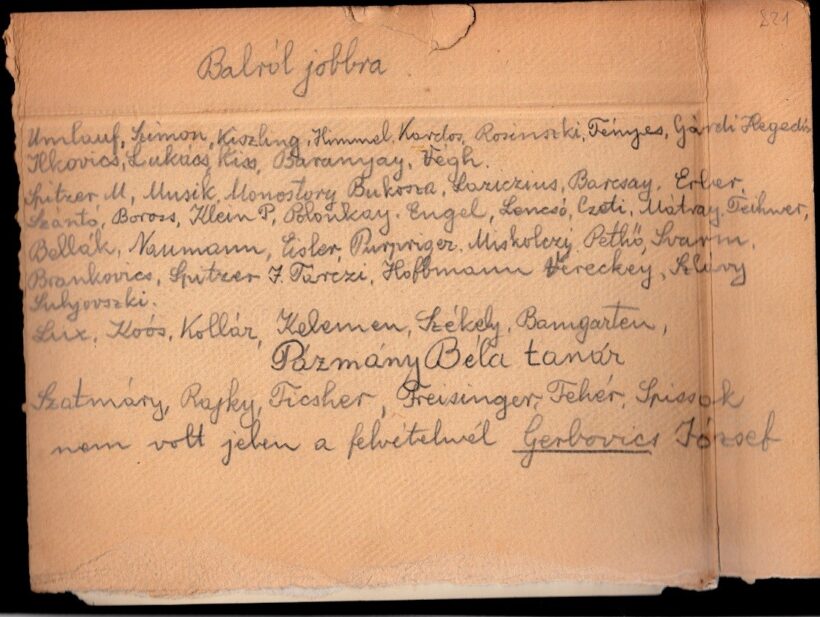 221
Balról jobbra
Umlauf, Simon, Kiszling, Himmel, Kardos, Rosinszki, Fényes, Gárdi Hegedűs
Ilkovics, Lukács, Kiss, Baranyay, Végh.
Spitzer M, Musik, Monostory Bukosza, Laziczius, Barcsay. Erber,
Szántó, Boross, Klein P, Polónkay. Engel, Lencsó, Czoti, Mátray, Teihner,
Bellák, Naumann, Eisler, Purpriger. Miskolczy, Pethő, Svarm,
Brankovics, Spitzer F. Tarczi, Hoffmann Vereckey, Szlávy
Sulyovszki.
Lux, Koós, Kollár, Kelemen, Székely, Bamgarten,
Pázmány Béla tanár
Szatmáry, Rajky, Ficsher, Preisinger, Fehér, Spissak
nem volt jelen a felvételnél Gerbovics József